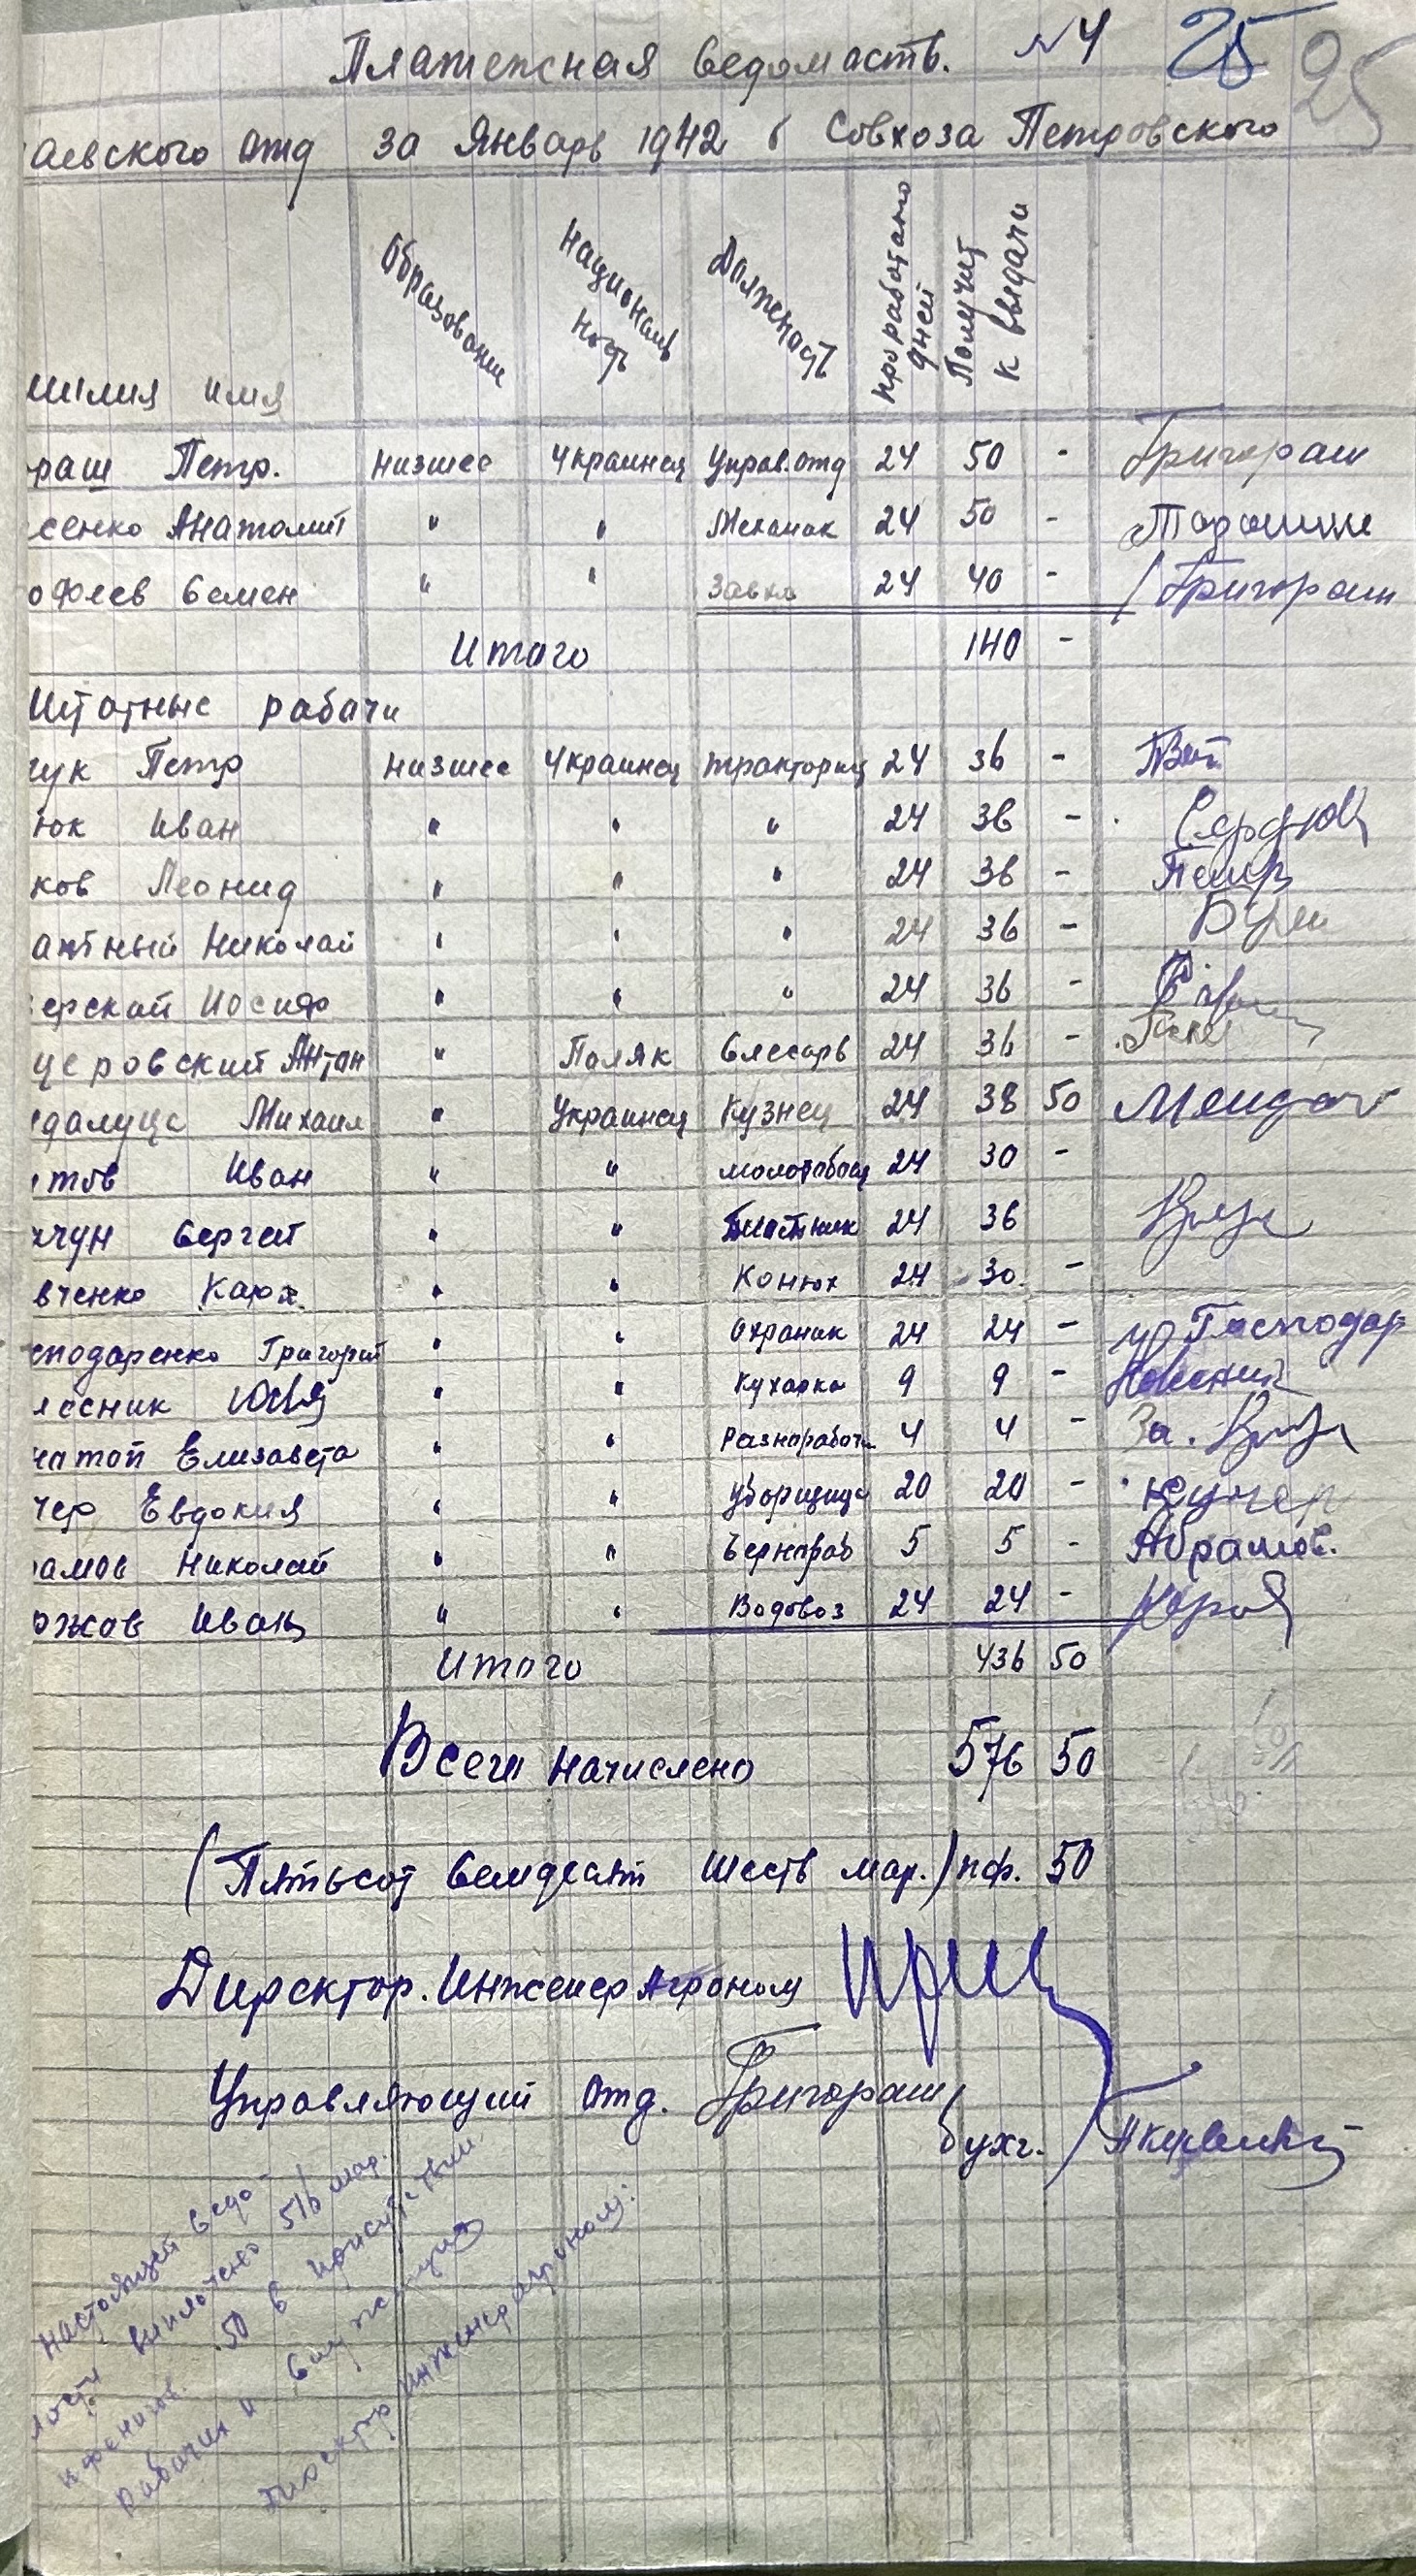 Платежная ведомость. №4 25 25
аевского отд за Январь 1942 г Совхоза Петровского
милия имя Образование Национальность Должность проработано дней Получит к выдачи
раш Петр. низшее Украинец Управ.отд 24 50 - Григораш
сенко Анатолий " " Механик 24 50 -
офеев Семен " " Завхоз 24 40 - Григораш
Итого 140 -
Штатные рабочи
чук Петр низшее Украинец тракторист 24 36 -
юк Иван " " " 24 36 - Сердюк
ков Леонид " " " 24 36 -
атный Николай " " " 24 36 -
ерский Иосиф " " " 24 36 -
церовский Антон " Поляк Слесарь 24 36 -
далуца Михаил " Украинец Кузнец 24 38 50
тов Иван " " молотобоец 24 30 -
чун Сергей " " 24 36
вченко Карп " " Конюх 24 30 -
сподаренко Григорий " " Охраник 24 24 - Господар
лесник Юлия " " Кухарка 9 9 -
чатой Елизавета " " Разнорабоч 4 4 - За.
чер Евдокия " " Уборщица 20 20 - Кучер
рамов Николай " " Чернораб 5 5 - Абрамов.
ожав Иван " " Водовоз 24 24 -
Итого 436 50
Всего начислено 576 50
(Пятьсот Семдесят шесть мар.) пф. 50
Директор. Инженер Агроном
Управляющий отд. Григораш
бухг.
настоящей ведо-
мости выплочено 576 мар.
пфенигов. 50 в присутствии
рабочих и служащих
Директор инженер агроном: